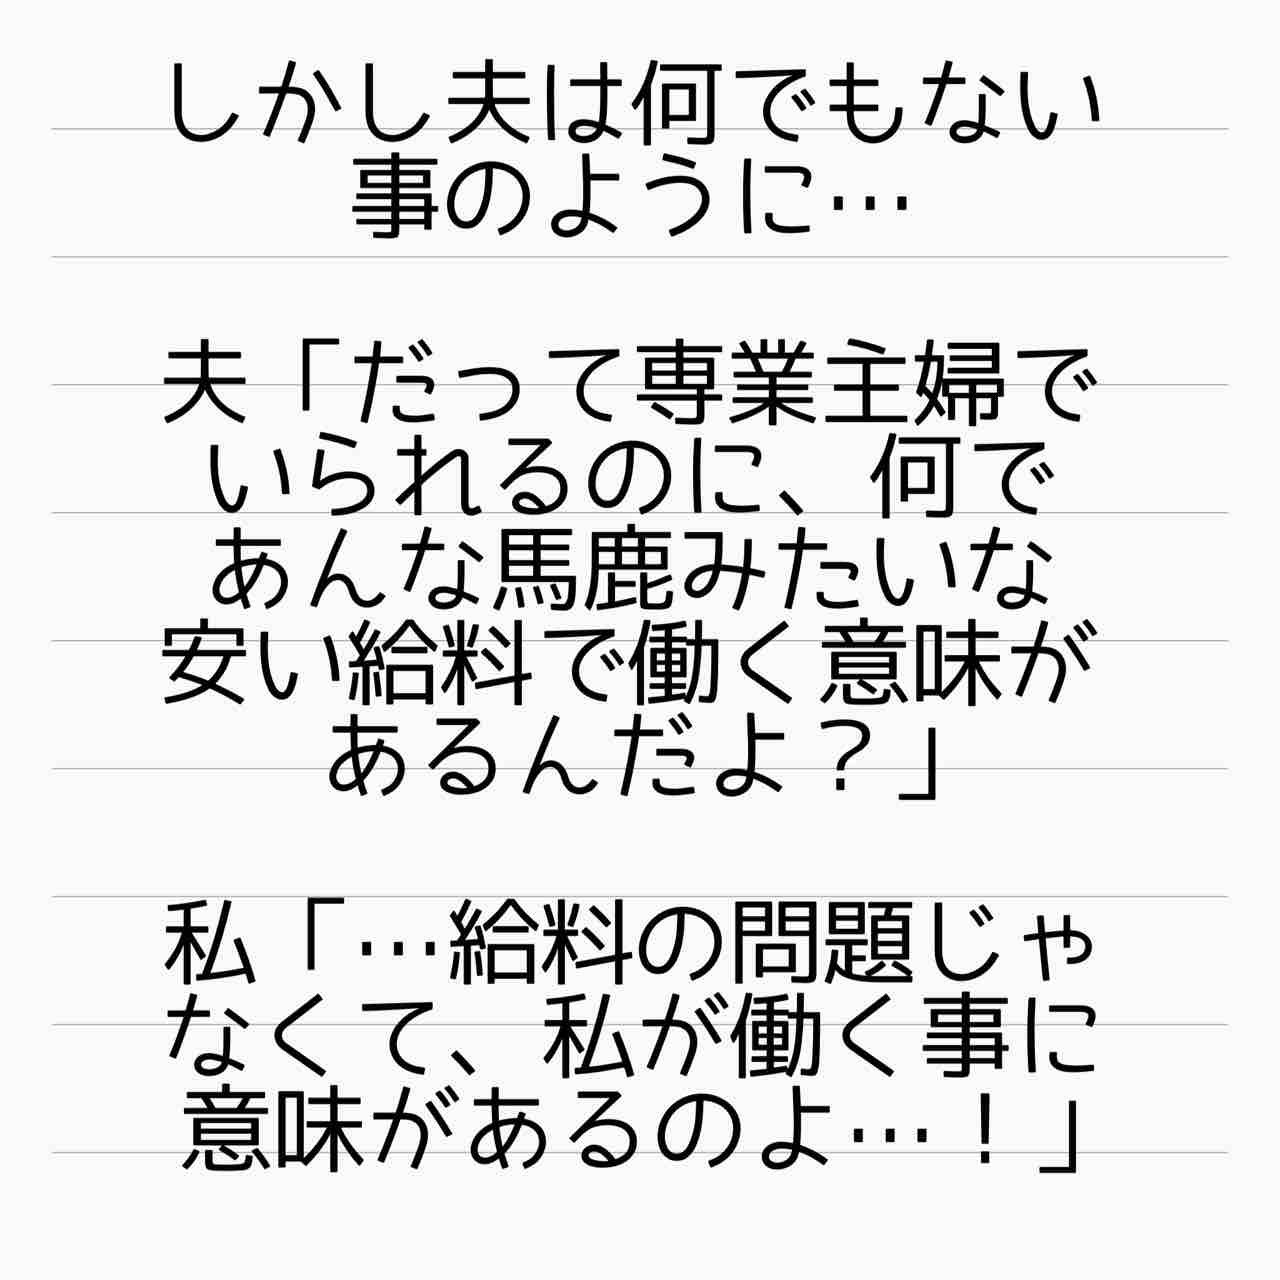 しかし夫は何でもない
事のように…
夫「だって専業主婦で
いられるのに、何で
あんな馬鹿みたいな
安い給料で働く意味が
あるんだよ？」
私「…給料の問題じゃ
なくて、私が働く事に
意味があるのよ…！」